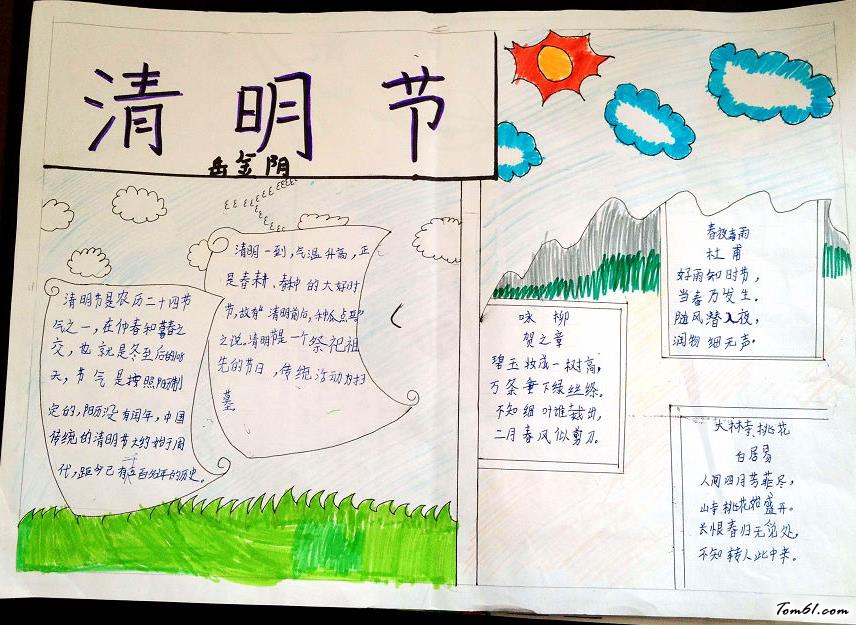 清明节
岳金阴
清明节是农历二十四节
气之一，在仲春和暮春之
交，也就是冬至后的108
天，节气是按照阳历制
定的，阳历没有闰年，中国
传统的清明节大约始于周
代，距今已有二千五百多年的历史。
清明一到，气温升高，正
是春耕、春种的大好时
节，故有"清明前后，种瓜点豆"
之说.清明节是一个祭祀祖
先的节日，传统活动为扫
墓
咏柳
贺之章
碧玉妆成一树高，
万条垂下绿丝绦。
不知细叶谁裁出，
二月春风似剪刀。
春夜喜雨
杜甫
好雨知时节，
当春乃发生.
随风潜入夜，
润物细无声.
大林寺桃花
白居易
人间四月芳菲尽，
山寺桃花始盛开。
长恨春归无觅处，
不知转入此中来。
Tom61.com